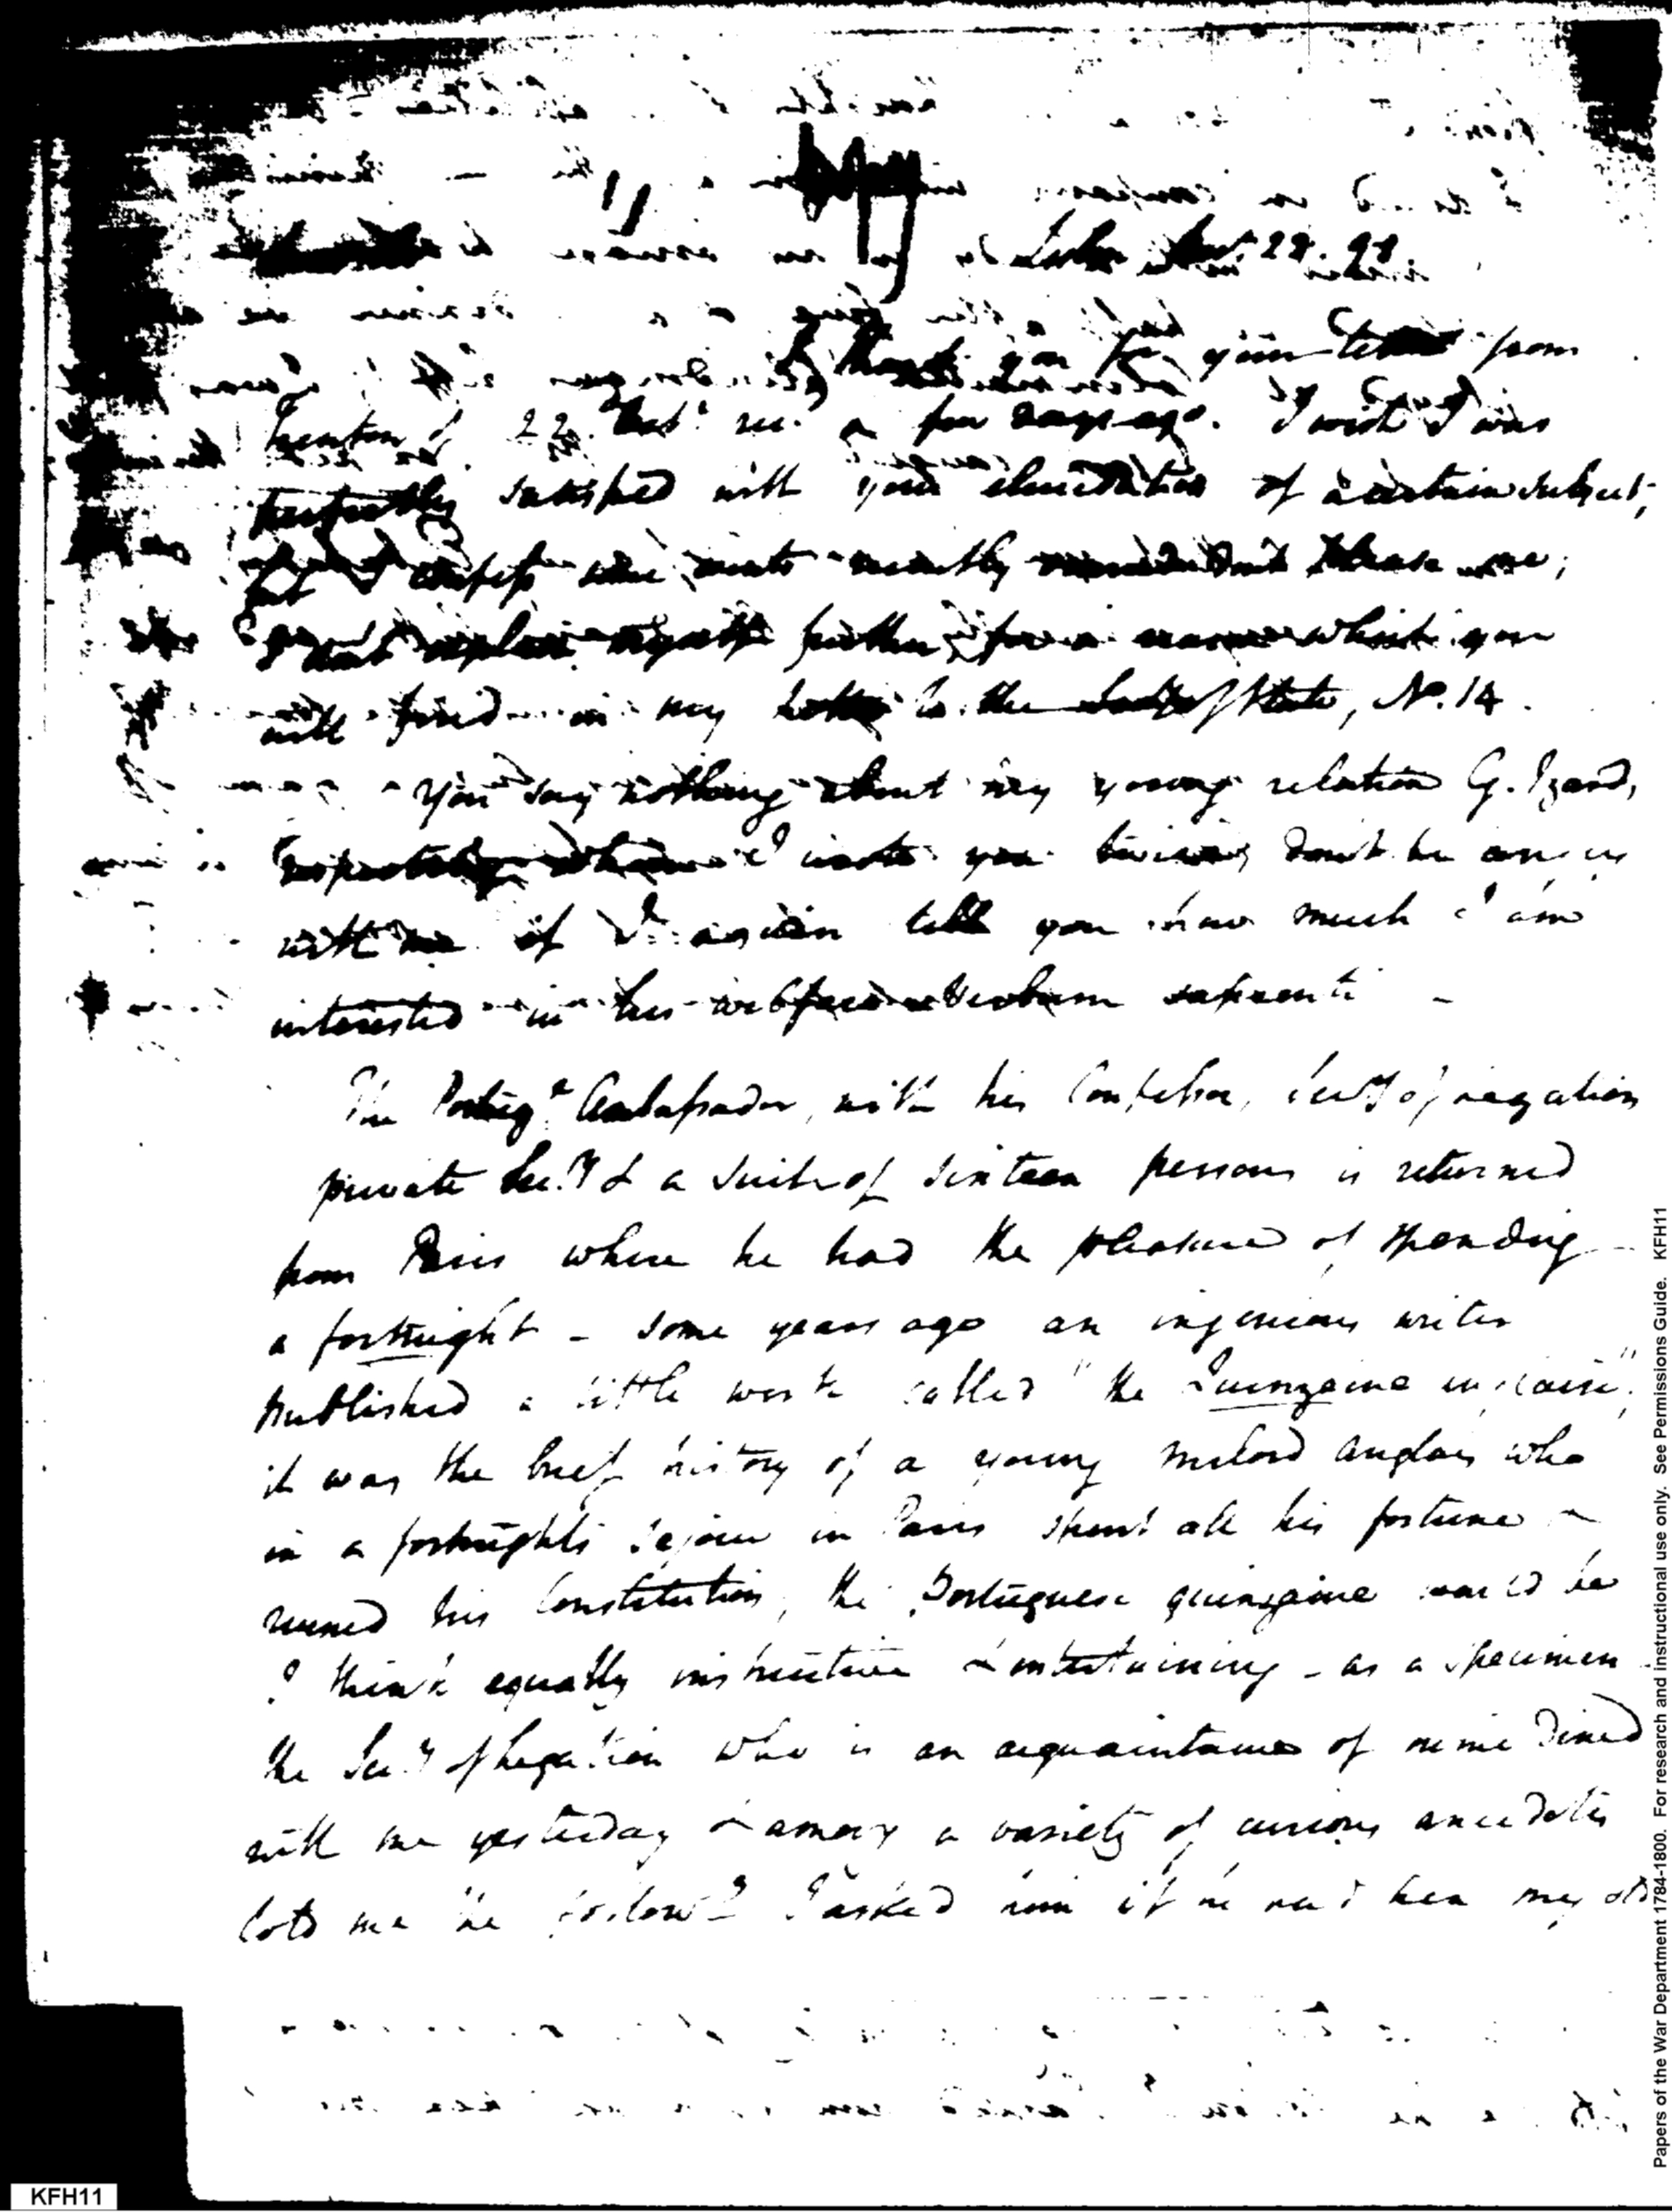 Nov. 28. 98
I thank you for your letter from
Trenton of 22. rec. a few days ago. I wish I was
perfectly satisfied with your elucidation of a certain subject,
but I confess some recently don't please me;
I explain myself further, for a reason which you
will find in my letter to the Sec.y of State, No. 14.
You say nothing about my young relation G. Izard,
respecting whom I wrote you twice; don't be angry
with me if I again tell you how much I am
interested in his welfare verbum sapienti -
The Portug.e Ambassador, with his Confessor, Sec.y of Legation
private Sec.y & a suite of sixteen persons is returned
from Paris where he had the pleasure of spending
a fortnight - some years ago an ingenious writer
published a little work called "the Quinzaine anglaise",
it was the brief history of a young milord anglais who
in a fortnight's sejour in Paris spent all his fortune &
ruined his Constitution, the Portuguese quinzaine would be
I think equally instructive & entertaining - as a specimen
the Sec.y of Legation who is an acquaintance of mine dined
with me yesterday & among a variety of curious anecdotes
told me the follow.g I asked him if he had been my old
Papers of the War Department 1784-1800. For research and instructional use only. See Permissions Guide. KFH11
KFH11